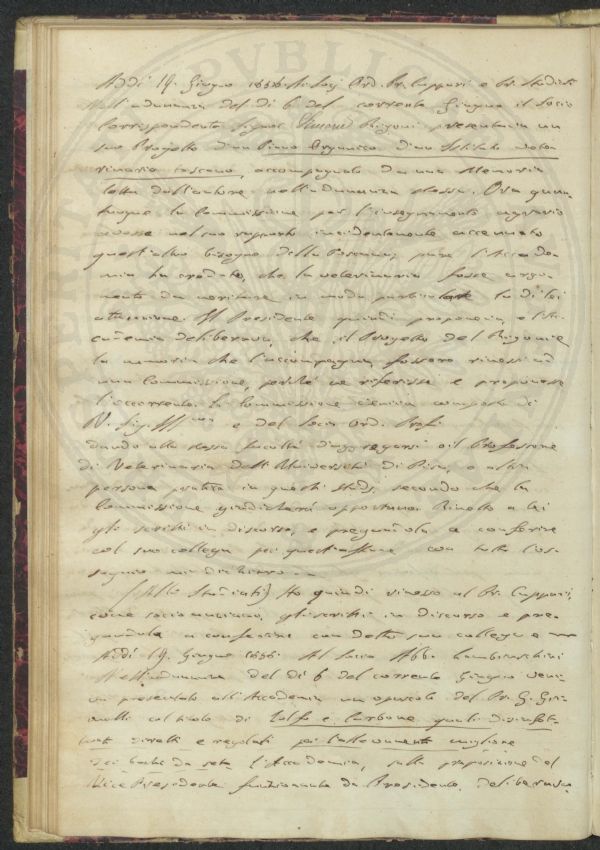 Addì 19. Giugno 1886 Ai Soci Ord. Pr. Cuppari e Pr. Studiati
Nell'adunanza del dì 6 del corrente Giugno il Socio
Corrispondente Signor Rigoni presentava un
suo Progetto d'un Piano Organico d'uno Istituto vete
rinario toscano, accompagnato da una Memoria
letta dall'autore nell'adunanza stessa. Ora quan
tunque la Commissione per l'insegnamento agrario
avesse nel suo rapporto incidentemente accennato
quest'altro bisogno della Toscana, pure l'Accade
mia ha creduto, che la veterinaria fosse argo
mento da meritare in modo particolare la di lei
attenzione. Il Presidente quindi proponeva, e l'Ac
cademia deliberava, che il Progetto del Rigoni e
la memoria che l'accompagna, fossero rimessi ad
una Commissione, perché ne riferisse e proponesse
l'occorrente. La Commissione è composta di
V. Sig. Ill.ma e del Socio Ord. Prof.
dando alla stessa facoltà d'aggregarsi o il Professore
di Veterinaria dell'Università di Pisa, o altra
persona pratica in questi studi, secondo che la
Commissione giudicherà opportuno. Rimetto a lei
gli scritti in discorso, e pregandola a conferire
col suo collega per quest'affare con tutto l'os
sequio mi dichiaro
(Allo Studiati) Ho quindi rimesso al Pr. Cuppari,
come socio anziano, gli scritti in discorso e pre
gandola a conferire con detto suo collega e
Addì 19. Giugno 1886. Al Socio Abb. Lambruschini
Nell'adunanza del dì 6 del corrente Giugno veni
va presentato all'Accademia un opuscolo del Pr. G. Gia
nelli col titolo di Zolfo e Carbone quali disinfet
tanti diretti e regolati per l'allevamento migliore
dei bachi da seta. L'Accademia, sulla proposizione del
Vice Presidente funzionante da Presidente, deliberava